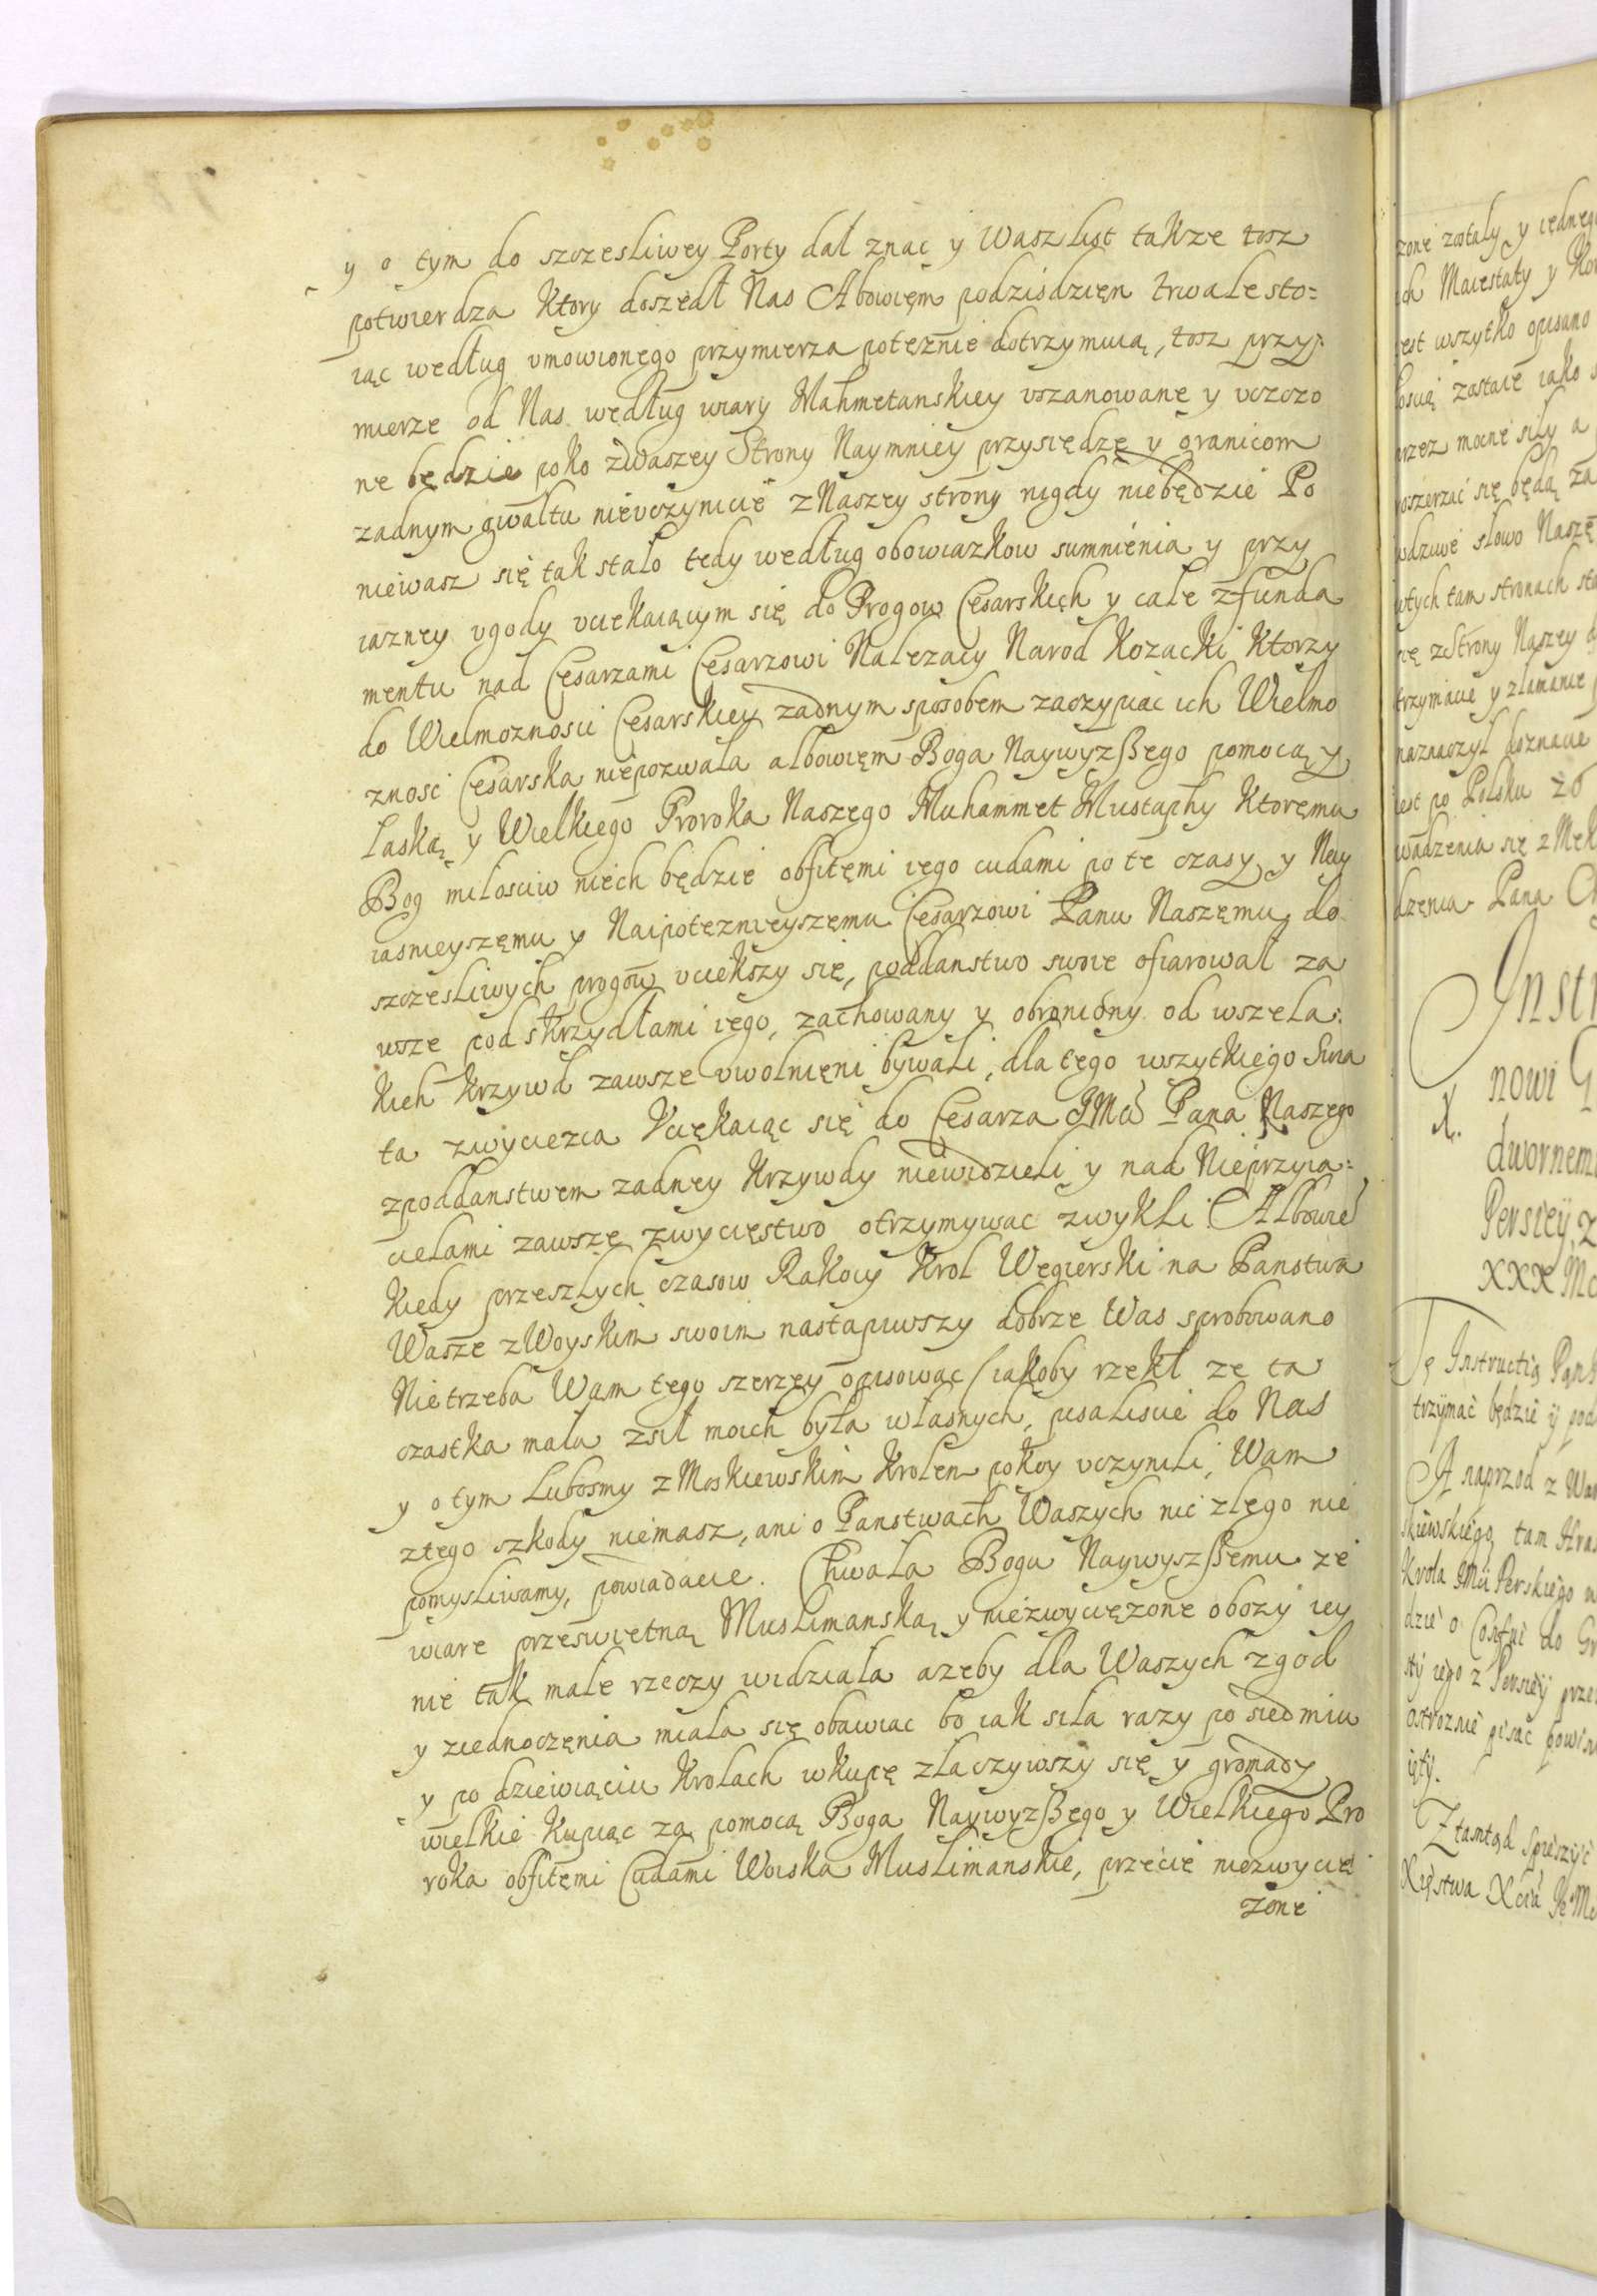 y o tym do szczesliwey Porty dał znac y Wasz List takze tosz
potwierdza Ktory doszedł Nas Abowięm podzisdzięn trwale sto=
iąc według vmowionego przymierza potęznie dotrzymuią, tosz przy=
mierze od Nas według wiary Mahmetanskiey vszanowane y vczczo
ne będzie poko zWaszey Strony Naymniey przysiędze y granicom
zadnym gwałtu nievczynicie zNaszey strony nigdy niebędzie Po
niewasz się tak stało tedy według obowiazkow sumnienia y przy
iazney vgody vciekaiącym się do Progow Cesarskich y cale zfunda
mentu nad Cesarzami Cesarzowi Nalezacy Narod Kozacki Ktorzy
do Wielmoznosci Cesarskiey zadnym sposobem zaczypiac ich Wielmo
znosc Cesarska niepozwala albowięm Boga Naywyzßego pomocą y
Laską y Wielkiego Proroka Naszego Muhammet Mustaphy Ktoręmu
Bog milosciw niech będzie obfitęmi iego cudami po te czasy y Nay
iasnieyszęmu y Naipotęznieyszemu Cesarzowi Panu Naszęmu do
szczesliwych progow vciekszy się, poddanstwo swoie ofiarował za
wsze pod skrzydłami iego, zachowany y obroniony od wszela:
kich Krzywd zawsze vwolnięni bywali, dla tego wszytkiego Swia
ta zwyciezca Vciękaiąc się do Cesarza JMci Pana Naszego
zpoddanstwem zadney Krzywdy niewidzieli y nad Nieprzyia=
cielami zawsze zwycięstwo otrzymywac zwykli Albowie
Kiedy przeszlych czasow Rakocy Krol Węgierski na Panstwa
Wasze zWoyskim swoim nastapiwszy dobrze Was sprobowano
Nietrzeba Wam tego szerzey opisowac (iakoby rzekł ze ta
czastka mala zsił moich była własnych, pisaliscie do Nas
y o tym Lubosmy z Moskiewskim Krolem pokoy vczynili, Wam
ztego szkody niemasz, ani o Panstwach Waszych nic złego nie
pomysliwamy, powiadacie. Chwala Bogu Naywyszßemu ze
wiare przeswietną Muslimanską y niezwyciężone obozy iey
nie tak male rzeczy widziala azeby dla Waszych zgod
y ziednoczęnia miala się obawiac bo iak siła razy po siedmiu
y po dziewiąciu Krolach wkupę zlaczywszy się y gromady
wielkie Kupiąc za pomocą Boga Naywyzßego y Wielkiego Pro
roka obfitęmi Cudami Woiska Muslimanskie, przecie niezwycię
zone
zone zostały y iednego
Maiestaty y
iest wszytko opisano
zostaie iako
przez mocne siły a
poszerzać się będą za
słowo Naszę
wtych tam stronach
zStrony Naszey
trzymacie y złamanie
naznaczył doznacie
iest po Polsku
wadzenia się z
dzęnia Pana
Instr
nowi
X.
dwornem
Persiey, z
XXX
Tę Instructią
trzÿmać będzie ÿ pod
A naprzod z
skiewskiego tam
Krola JMci Perskiego
dzie o
iego z Persiey
ostroznie pisac
Ztamtąd Spieszÿc
Xięstwa Xcia